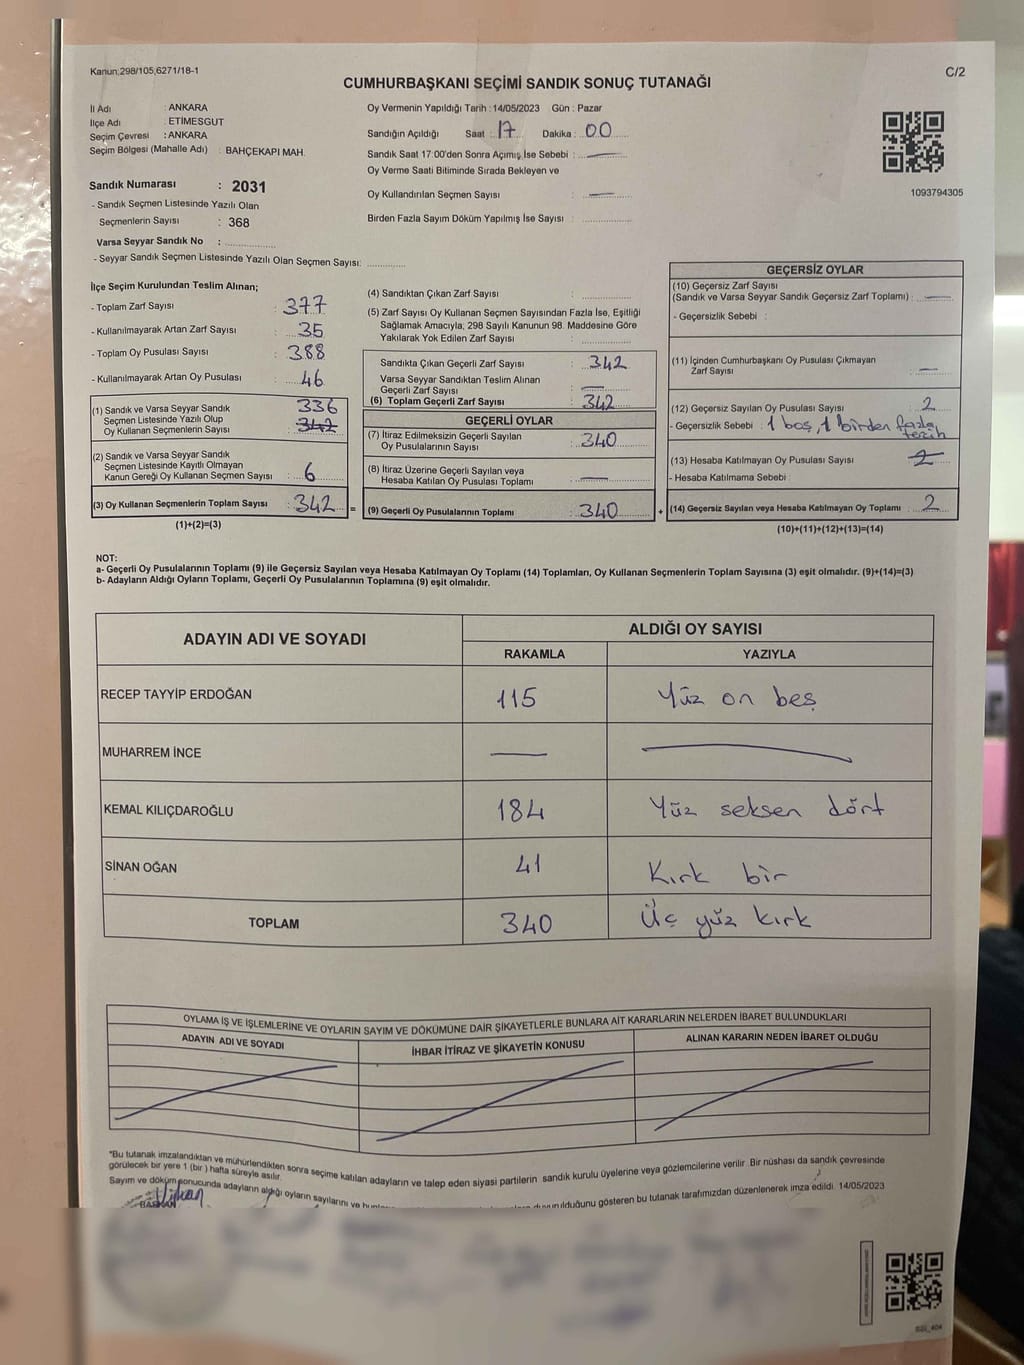 Kanun;298/105,6271/18-1
C/2
CUMHURBAŞKANI SEÇİMİ SANDIK SONUÇ TUTANAĞI
İl Adı : ANKARA
İlçe Adı : ETİMESGUT
Seçim Çevresi : ANKARA
Seçim Bölgesi (Mahalle Adı) : BAHÇEKAPI MAH.
Sandık Numarası : 2031
- Sandık Seçmen Listesinde Yazılı Olan
Seçmenlerin Sayısı : 368
Varsa Seyyar Sandık No : ............
- Seyyar Sandık Seçmen Listesinde Yazılı Olan Seçmen Sayısı: ............
Oy Vermenin Yapıldığı Tarih : 14/05/2023 Gün : Pazar
Sandığın Açıldığı Saat : 17 Dakika : 00
Sandık Saat 17:00'den Sonra Açımış İse Sebebi : —
Oy Verme Saati Bitiminde Sırada Bekleyen ve
Oy Kullandırılan Seçmen Sayısı : —
Birden Fazla Sayım Döküm Yapılmış İse Sayısı : ............
1093794305
İlçe Seçim Kurulundan Teslim Alınan;
- Toplam Zarf Sayısı : 377
- Kullanılmayarak Artan Zarf Sayısı : 35
- Toplam Oy Pusulası Sayısı : 388
- Kullanılmayarak Artan Oy Pusulası : 46
(1) Sandık ve Varsa Seyyar Sandık 336
Seçmen Listesinde Yazılı Olup 342
Oy Kullanan Seçmenlerin Sayısı
(2) Sandık ve Varsa Seyyar Sandık
Seçmen Listesinde Kayıtlı Olmayan
Kanun Gereği Oy Kullanan Seçmen Sayısı : 6
(3) Oy Kullanan Seçmenlerin Toplam Sayısı : 342 =
(1)+(2)=(3)
(4) Sandıktan Çıkan Zarf Sayısı : ............
(5) Zarf Sayısı Oy Kullanan Seçmen Sayısından Fazla İse, Eşitliği
Sağlamak Amacıyla, 298 Sayılı Kanunun 98. Maddesine Göre
Yakılarak Yok Edilen Zarf Sayısı : ............
Sandıkta Çıkan Geçerli Zarf Sayısı : 342
Varsa Seyyar Sandıktan Teslim Alınan
Geçerli Zarf Sayısı : —
(6) Toplam Geçerli Zarf Sayısı : 342
GEÇERLİ OYLAR
(7) İtiraz Edilmeksizin Geçerli Sayılan
Oy Pusulasının Sayısı : 340
(8) İtiraz Üzerine Geçerli Sayılan veya
Hesaba Katılan Oy Pusulası Toplamı : —
(9) Geçerli Oy Pusulalarının Toplamı : 340 +
GEÇERSİZ OYLAR
(10) Geçersiz Zarf Sayısı
(Sandık ve Varsa Seyyar Sandık Geçersiz Zarf Toplamı) : —
- Geçersizlik Sebebi :
(11) İçinden Cumhurbaşkanı Oy Pusulası Çıkmayan
Zarf Sayısı : —
(12) Geçersiz Sayılan Oy Pusulası Sayısı : 2
- Geçersizlik Sebebi : 1 boş, 1 birden fazla
tercih
(13) Hesaba Katılmayan Oy Pusulası Sayısı : 2
- Hesaba Katılmama Sebebi :
(14) Geçersiz Sayılan veya Hesaba Katılmayan Oy Toplamı : 2
(10)+(11)+(12)+(13)=(14)
NOT:
a- Geçerli Oy Pusulalarının Toplamı (9) ile Geçersiz Sayılan veya Hesaba Katılmayan Oy Toplamı (14) Toplamları, Oy Kullanan Seçmenlerin Toplam Sayısına (3) eşit olmalıdır. (9)+(14)=(3)
b- Adayların Aldığı Oyların Toplamı, Geçerli Oy Pusulalarının Toplamına (9) eşit olmalıdır.
ADAYIN ADI VE SOYADI ALDIĞI OY SAYISI
RAKAMLA YAZIYLA
RECEP TAYYİP ERDOĞAN 115 Yüz on beş
MUHARREM İNCE —
KEMAL KILIÇDAROĞLU 184 Yüz seksen dört
SİNAN OĞAN 41 Kırk bir
TOPLAM 340 Üç yüz kırk
OYLAMA İŞ VE İŞLEMLERİNE VE OYLARIN SAYIM VE DÖKÜMÜNE DAİR ŞİKAYETLERLE BUNLARA AİT KARARLARIN NELERDEN İBARET BULUNDUKLARI
ADAYIN ADI VE SOYADI İHBAR İTİRAZ VE ŞİKAYETİN KONUSU ALINAN KARARIN NEDEN İBARET OLDUĞU
*Bu tutanak imzalandıktan ve mühürlendikten sonra seçime katılan adayların ve talep eden siyasi partilerin sandık kurulu üyelerine veya gözlemcilerine verilir. Bir nüshası da sandık çevresinde
görülecek bir yere 1 (bir ) hafta süreyle asılır.
Sayım ve döküm sonucunda adayların aldığı oyların sayılarını ve duyurulduğunu gösteren bu tutanak tarafımızdan düzenlenerek imza edildi. 14/05/2023
BAŞKAN